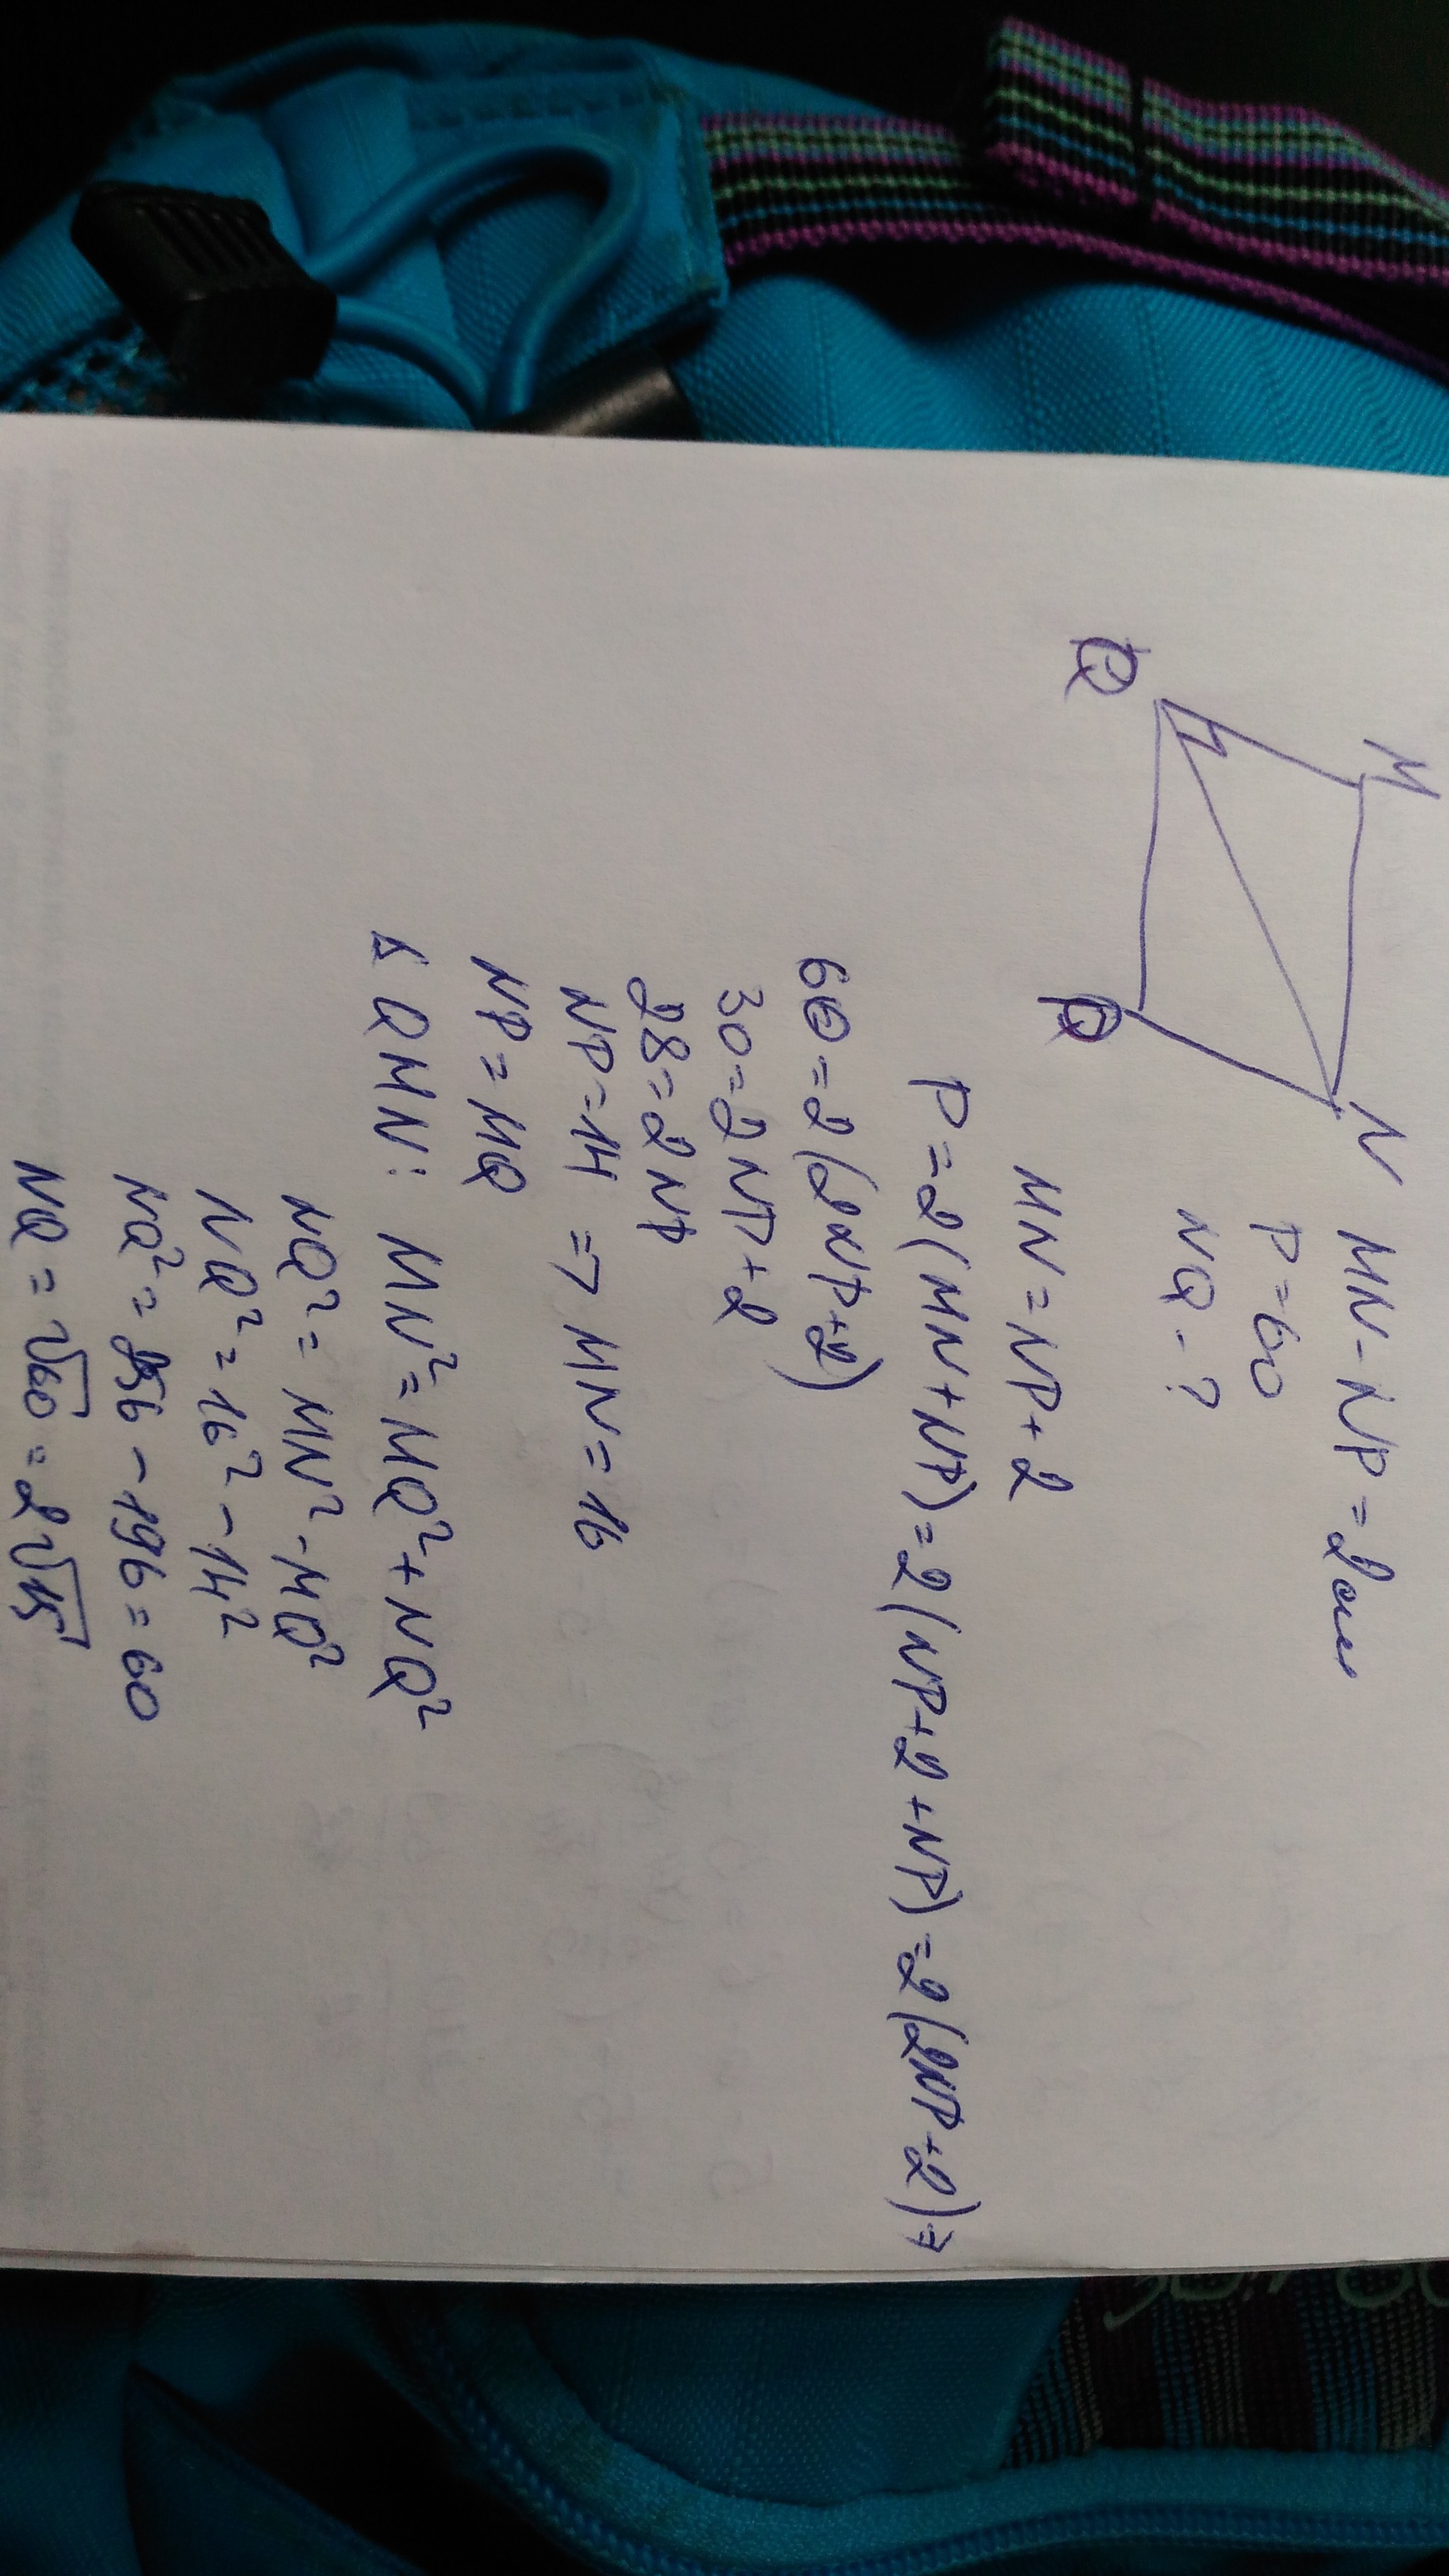 M
N
Q
P
MN - NP = 2 см
P = 60
NQ - ?
MN = NP + 2
P = 2(MN + NP) = 2(NP + 2 + NP) = 2(2NP + 2) ⇒
60 = 2(2NP + 2)
30 = 2NP + 2
28 = 2NP
NP = 14 ⇒ MN = 16
NP = MQ
Δ QMN: MN² = MQ² + NQ²
NQ² = MN² - MQ²
NQ² = 16² - 14²
NQ² = 256 - 196 = 60
NQ = √60 = 2√15